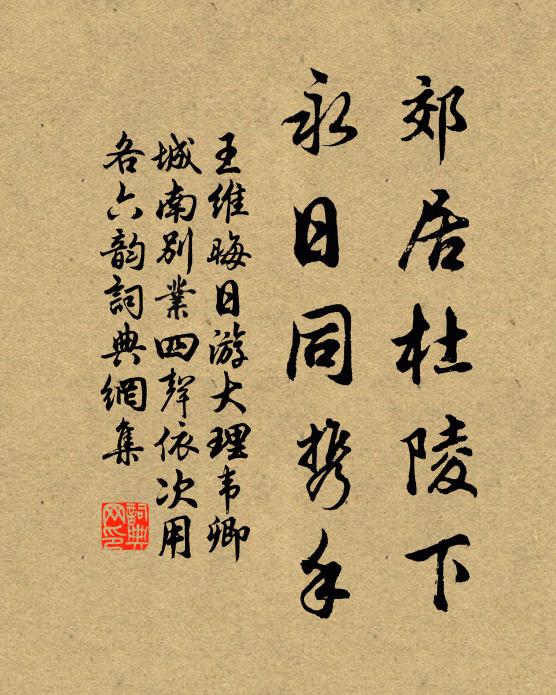 郊居杜陵下
永日同携手
王维晦日游大理韦卿
城南别業四聲依次用
各六韵詞典網集
詞典网印